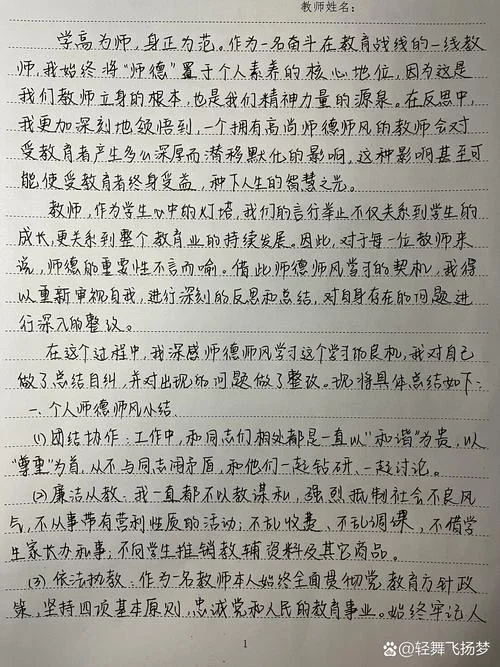 教师姓名：
学高为师，身正为范。作为一名奋斗在教育战线的一线教
师，我始终将“师德”置于个人素养的核心地位，因为这是
我们教师立身的根本，也是我们精神力量的源泉。在反思中，
我更加深刻地领悟到，一个拥有高尚师德师风的教师会对
受教育者产生多么深厚而潜移默化的影响，这种影响甚至可
能使受教育者终身受益，种下人生的智慧之光。
教师，作为学生心中的灯塔，我们的言行举止不仅关系到学生的
成长，更关系到整个教育业的持续发展。因此，对于每一位教师来
说，师德的重要性不言而喻。借此师德师风学习的契机，我得
以重新审视自我，进行深刻的反思和总结，对自身存在的问题进
行深入的整改。
在这个过程中，我深感师德师风学习这个学习的良机，我对自己
做了总结自纠，并对出现的问题做了整改。现将具体总结如下：
一、个人师德师风小结
（1）团结协作：工作中，和同志们相处都是一直以“和谐”为贵，以
“尊重”为首，从不与同志闹矛盾，和他们一起钻研、一起讨论。
（2）廉洁从教：我一直都不以教谋私，强烈抵制社会不良风
气，不从事带有营利性质的活动；不乱收费、不乱调课，不借学
生家长办私事；不向学生推销教辅资料及其它商品。
（3）依法执教：作为一名教师本人始终全面贯彻党教育方针政
策，坚持四项基本原则，忠诚党和人民的教育事业。始终牢记人
1
@轻舞飞扬梦